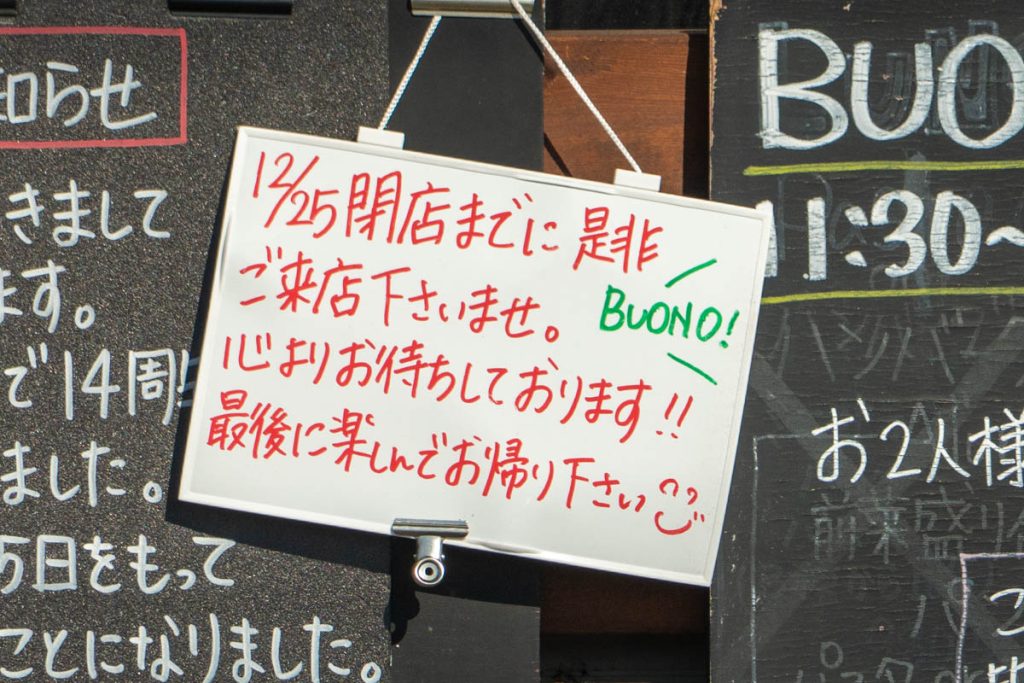 知らせ
きまして
ます。
で14周
ました。
5日をもって
ことになりました。
12/25閉店までに是非
ご来店下さいませ。
BUONO!
心よりお待ちしております!!
最後に楽しんでお帰り下さい
BUO
11:30~
お2人様
前菜盛り